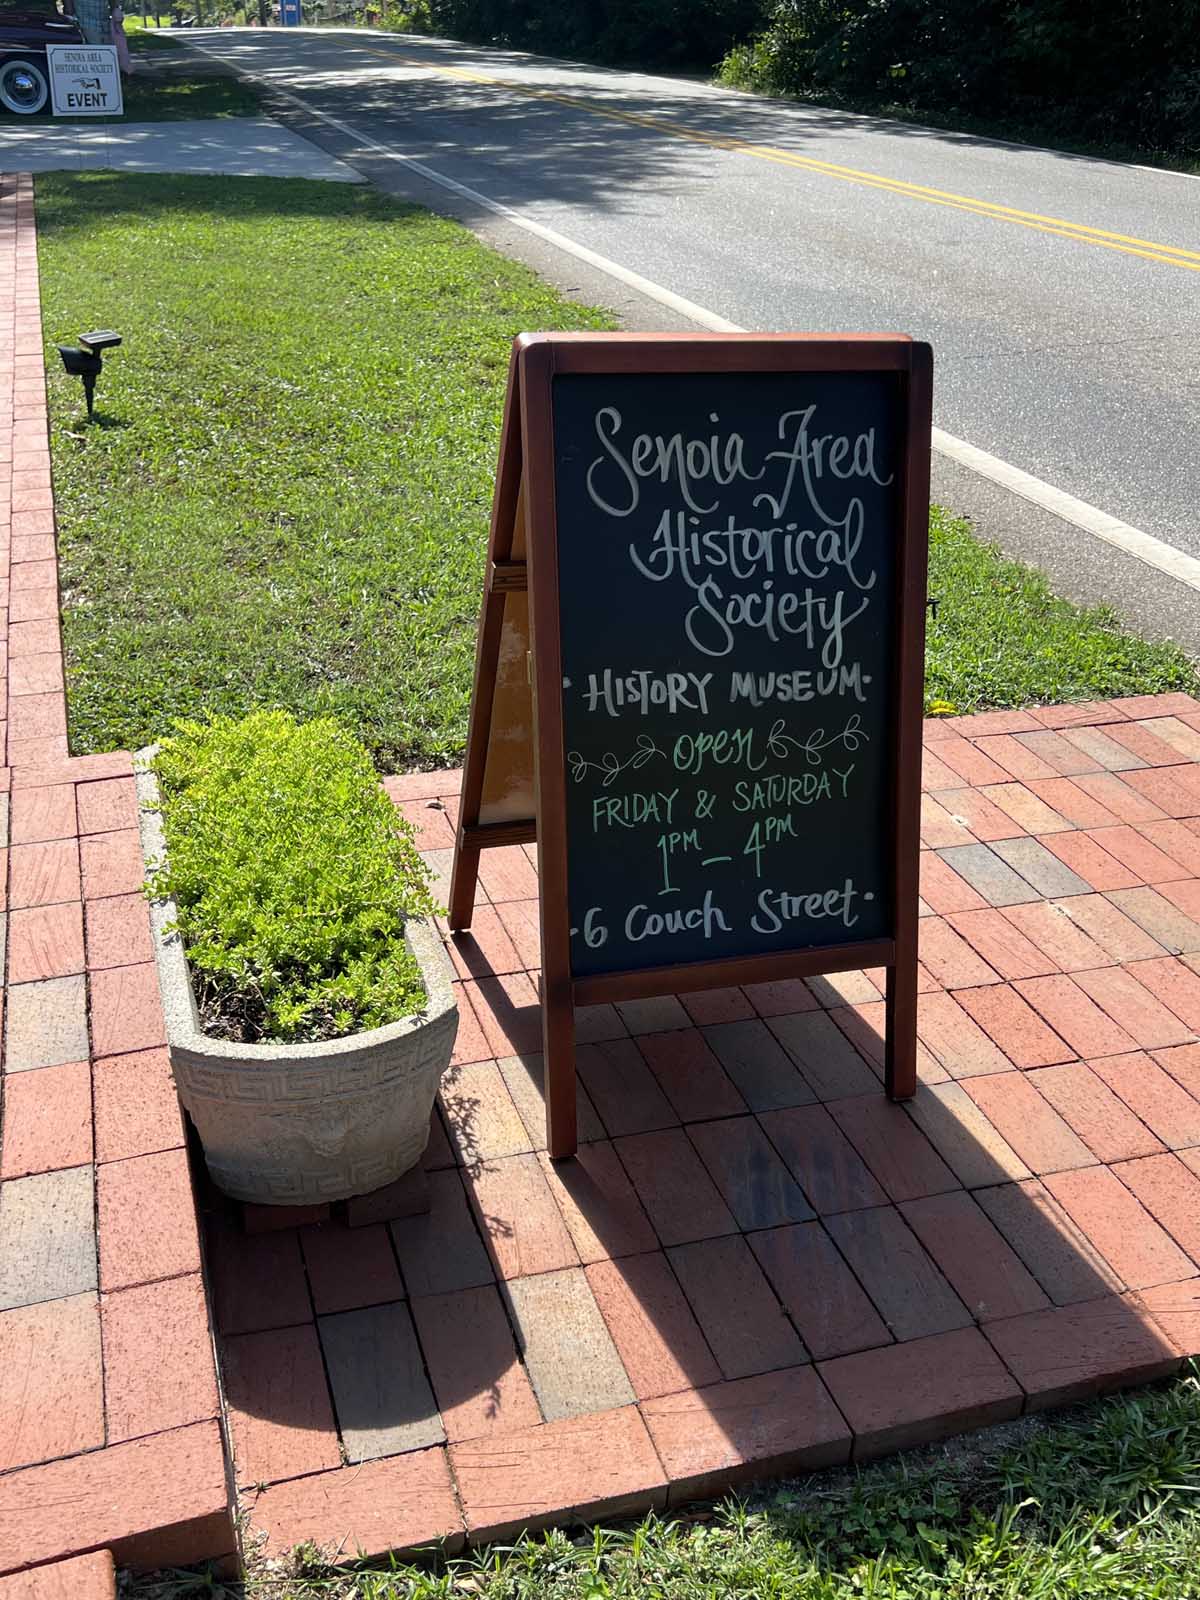 SENOIA AREA
HISTORICAL SOCIETY
EVENT
Senoia Area
Historical
Society
· HISTORY MUSEUM ·
OPEN
FRIDAY & SATURDAY
1PM – 4PM
· 6 Couch Street ·